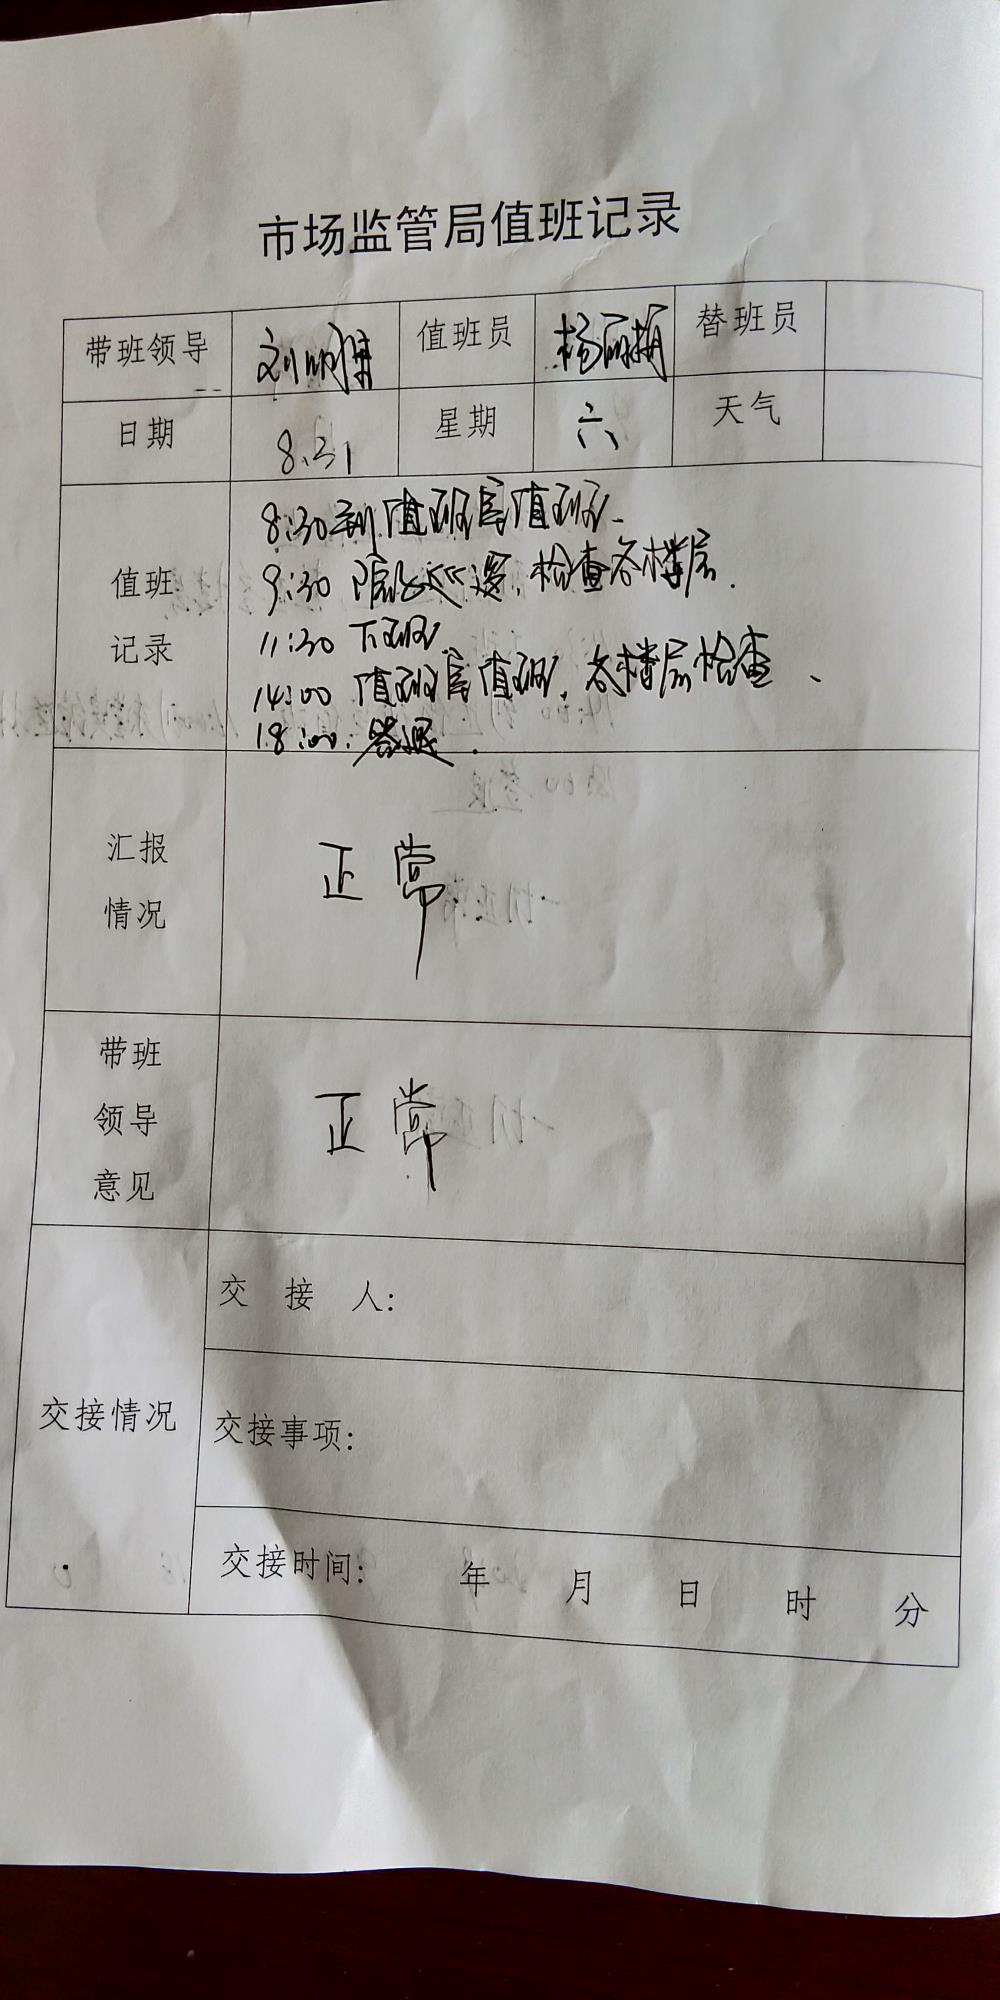 市场监管局值班记录
带班领导 刘明 值班员 杨丽娟 替班员
日期 8.31 星期 六 天气
值班记录
8:30到值班室值班.
9:30 院内巡逻,检查各楼层.
11:30 下班.
14:00 值班室值班,各楼层检查.
18:00.签退.
汇报情况
正常
带班领导意见
正常
交接情况
交 接 人:
交接事项:
交接时间: 年 月 日 时 分